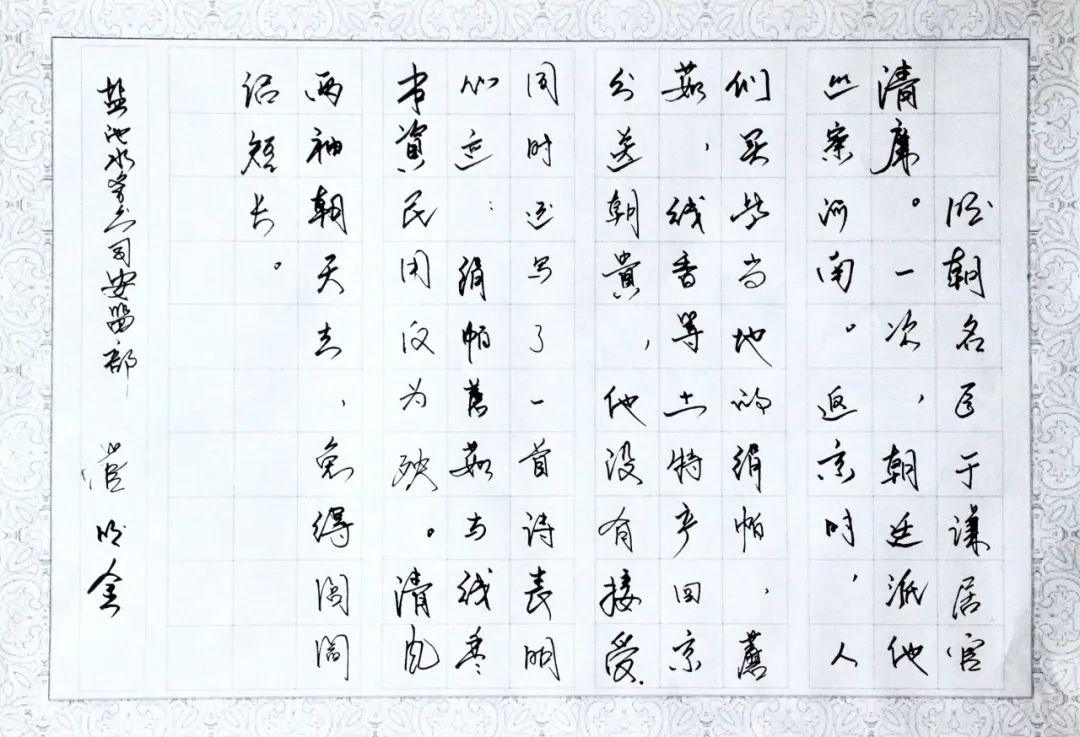 明朝名臣于谦居官
清廉。一次,朝廷派他
巡案河南。返京时,人
们买些当地的绢帕,蘑
菇,线香等土特产回京
分送朝贵,他没有接受.
同时还写了一首诗表明
心迹:绢帕蘑菇与线香
本资民用反为殃。清风
两袖朝天去,免得闾阎
话短长。
盐池水务公司安监部 管明金